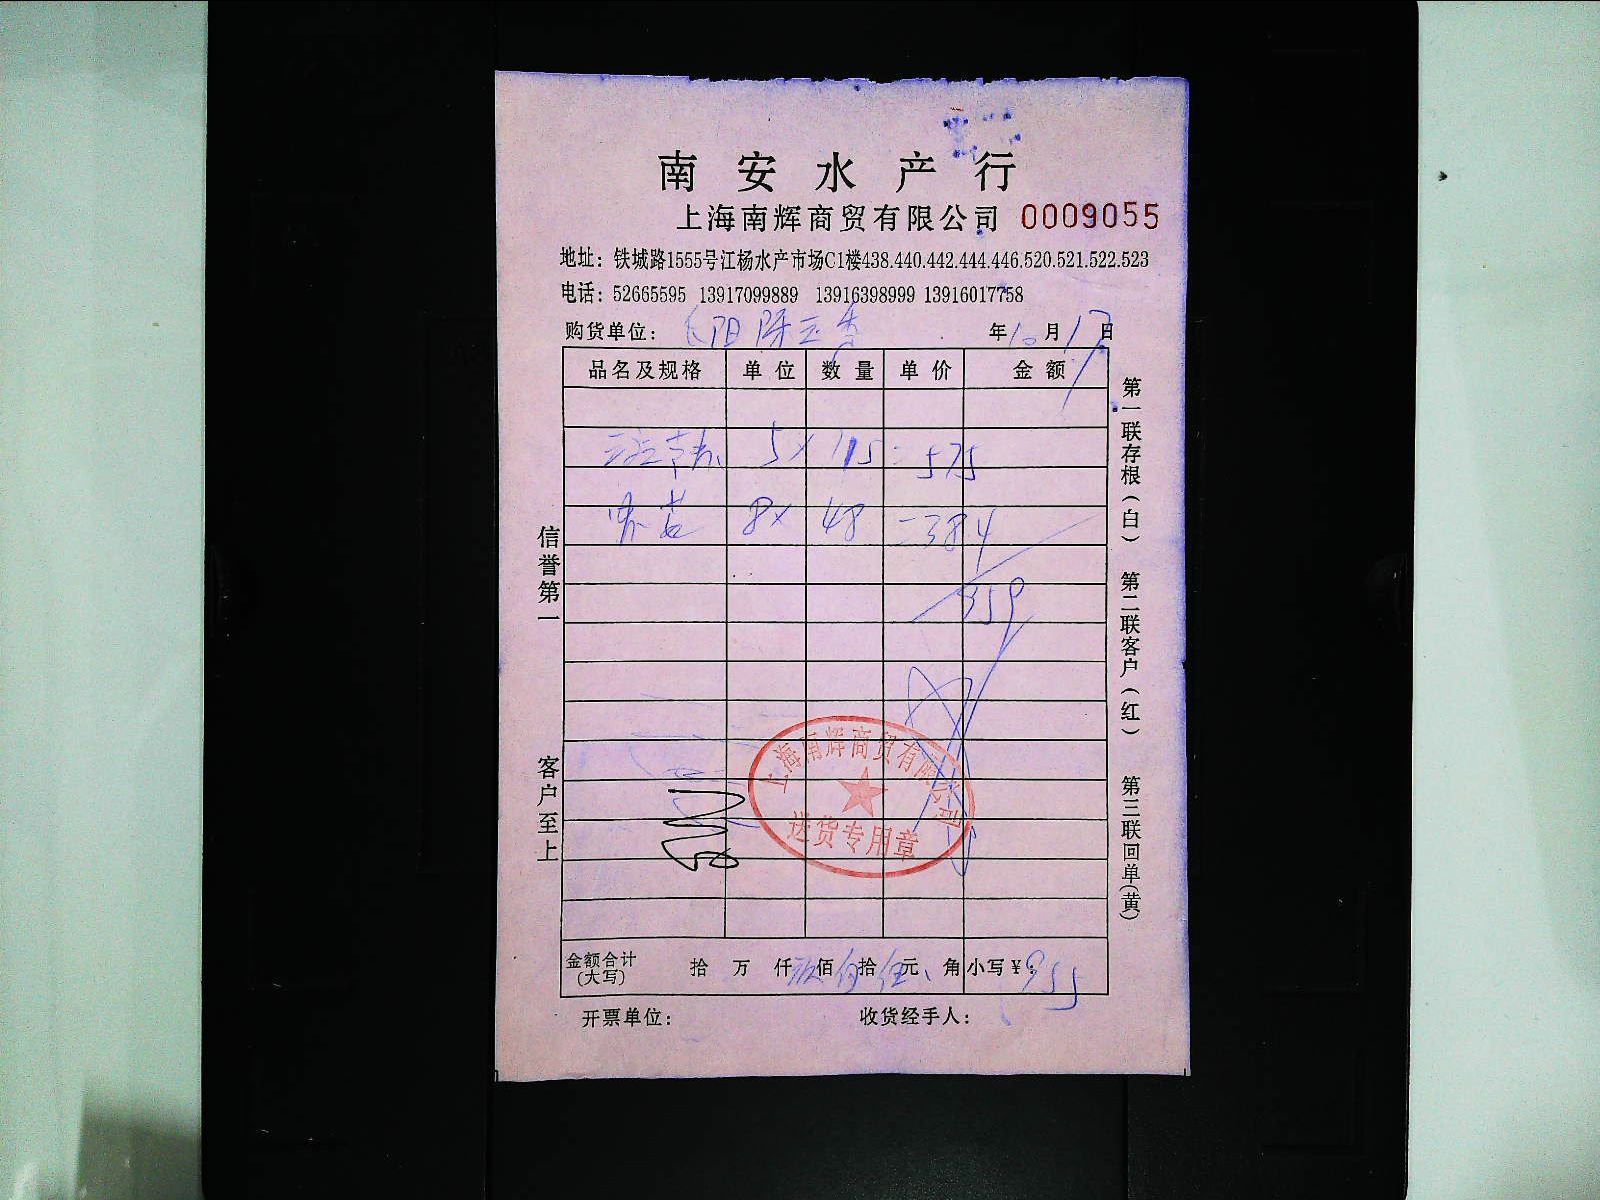 南安水产行
上海南辉商贸有限公司 0009055
地址：铁城路1555号江杨水产市场C1楼438.440.442.444.446.520.521.522.523
电话：52665595 13917099889 13916398999 13916017758
购货单位： 年10月17日
品名及规格 单位 数量 单价 金额
5× 115 =575
8× 48 =384
959
信誉第一 客户至上
第一联存根（白） 第二联客户（红） 第三联回单（黄）
上海南辉商贸有限公司
送货专用章
金额合计（大写） 拾 万 仟 玖佰 伍拾 伍元 角 小写￥：955
开票单位： 收货经手人：